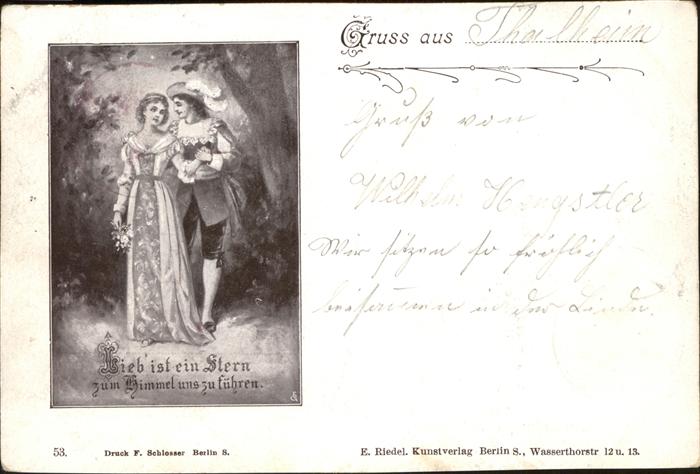 Gruss aus Thalheim
Gruß von
Wilhelm Hengstler
Wir sitzen so fröhlich
beisammen in der Linde.
Lieb' ist ein Stern
zum Himmel uns zu führen.
53. Druck F. Schlosser Berlin S.
E. Riedel. Kunstverlag Berlin S., Wasserthorstr 12 u. 13.